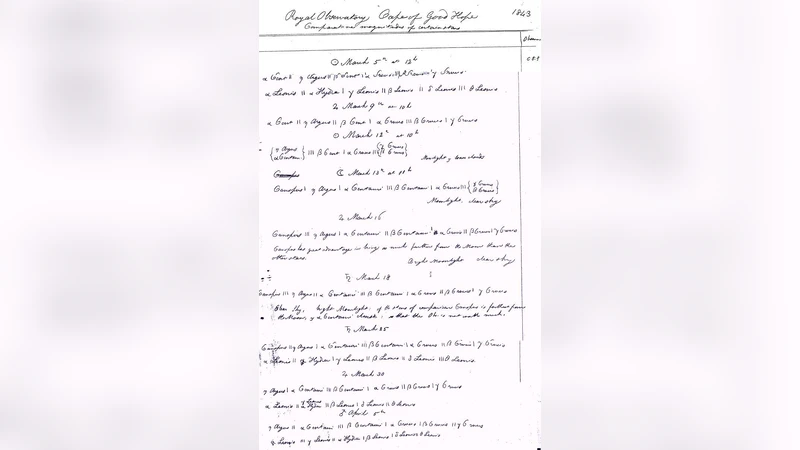 Royal Observatory, Cape of Good Hope 1843
Comparative magnitudes of certain stars
☉ March 5th at 12h
α Leonis || α Hydræ | γ Leonis || β Leonis || δ Leonis ||| θ Leonis
♃ March 9th at 10h
α Cent || η Argus || β Cent | α Crucis ||| β Crucis | γ Crucis
☉ March 12th at 10h
{η Argus
α Centauri} ||| β Cent | α Crucis || {γ Crucis
β Crucis}
Moonlight,
☾ March 13th at 11h
Canopus | η Argus | α Centauri ||| β Centauri | α Crucis ||| {γ Crucis
β Crucis}
Moonlight, clear sky
♃ March 16
Canopus ||| η Argus | α Centauri || β Centauri α Crucis || β Crucis | γ Crucis
Canopus has great advantage in being so much farther from the Moon than the
other stars. Bright Moonlight clear sky
♄ March 18
Canopus ||| η Argus || α Centauri ||| β Centauri | α Crucis || β Crucis | γ Crucis
Blue sky, bright Moonlight, of the stars of comparison Canopus is farthest from
the Moon, so that the Obs is not worth much.
♄ March 25
Canopus || η Argus | α Centauri ||| β Centauri | α Crucis || β Crucis | γ Crucis
α Leonis || α Hydræ | γ Leonis || β Leonis || δ Leonis ||| θ Leonis
♃ March 30
η Argus | α Centauri ||| β Centauri | α Crucis || β Crucis | γ Crucis
α Leonis || γ Leonis
α Hydræ || β Leonis | δ Leonis || θ Leonis
♂ April 5th
η Argus || α Centauri ||| β Centauri | α Crucis | β Crucis || γ Crucis
α Leonis ||| γ Leonis || α Hydræ | β Leonis | δ Leonis θ Leonis